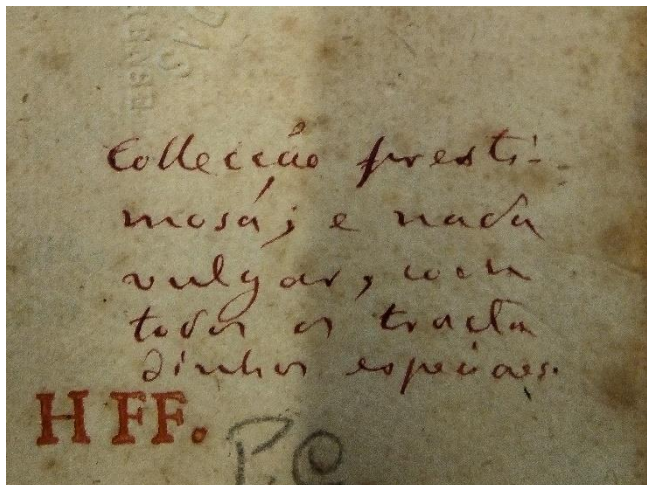 Collecção presti-
mosa; e nada
vulgar, com
todos os tracta
dinhos especiaes.
H FF.
P. C